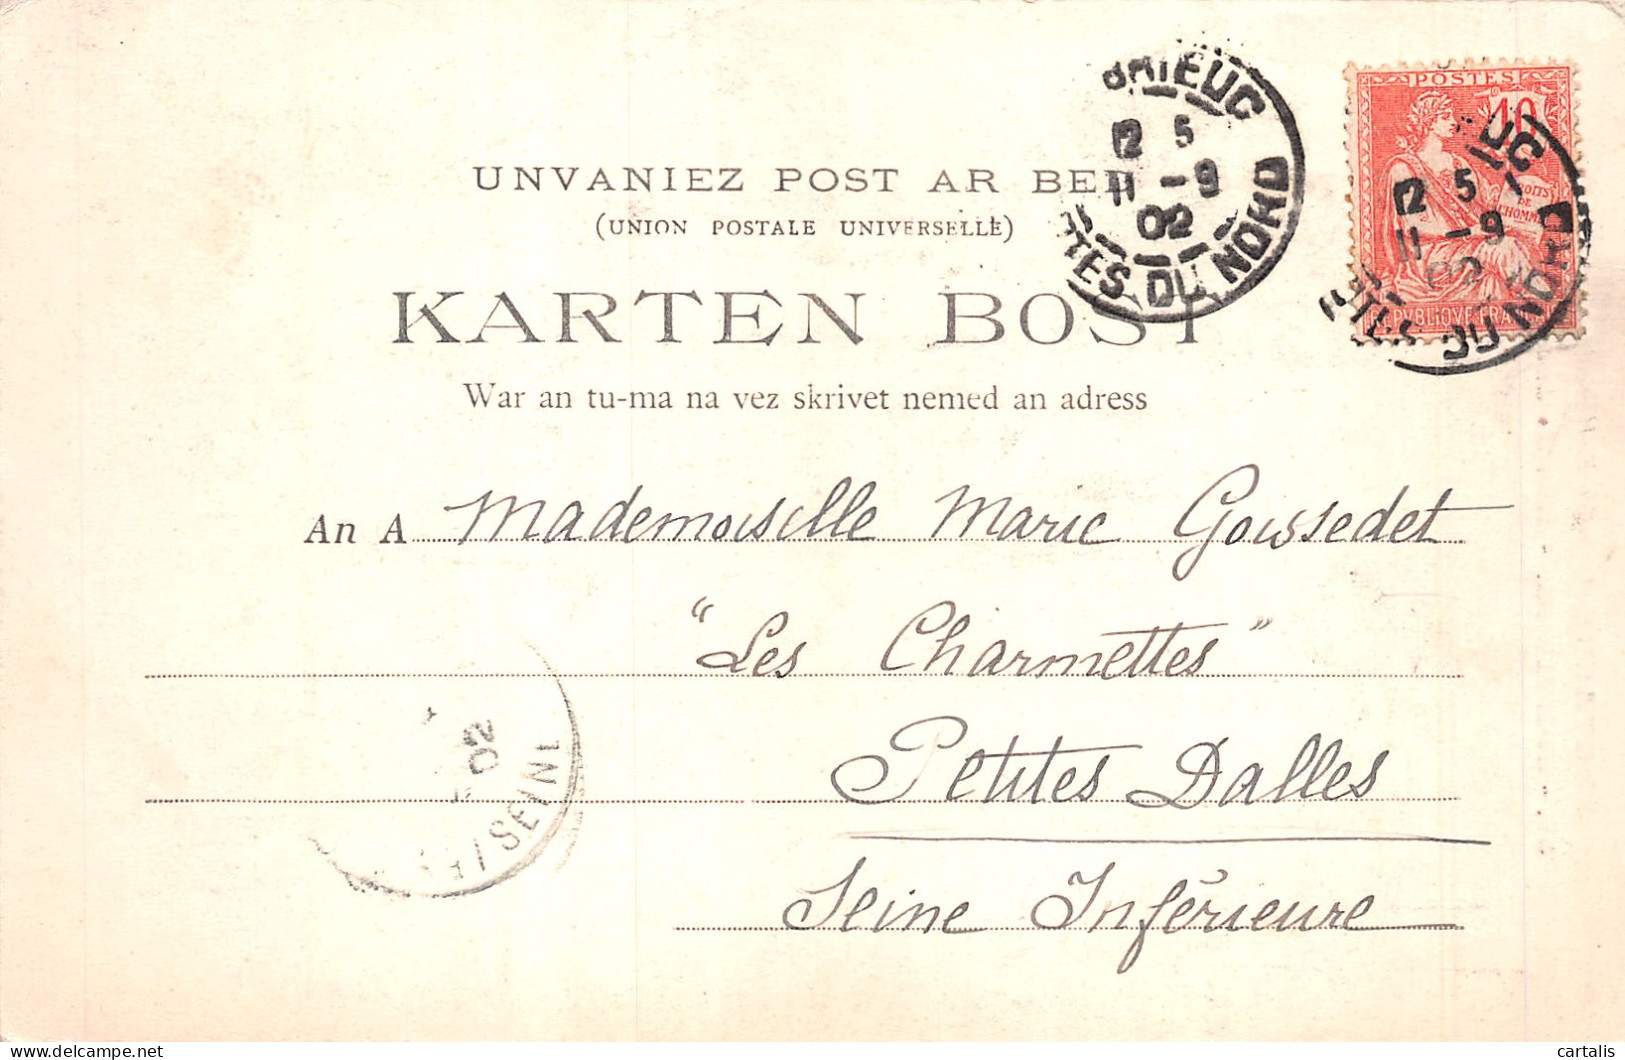 UNVANIEZ POST AR BED
(UNION POSTALE UNIVERSELLE)
KARTEN BOST
War an tu-ma na vez skrivet nemed an adress
An A Mademoiselle Marie Goussedet
"Les Charmettes"
Petites Dalles
Seine Inférieure
BRIEUC
12 5
11 -9
02
TES DU NORD
POSTES
10
DROITS
DE
L'HOMME
REPVBLIQVE FRA
UC
12 5
11 -9
02
TES DU NORD
02
SEINE
delcampe.net
cartalis